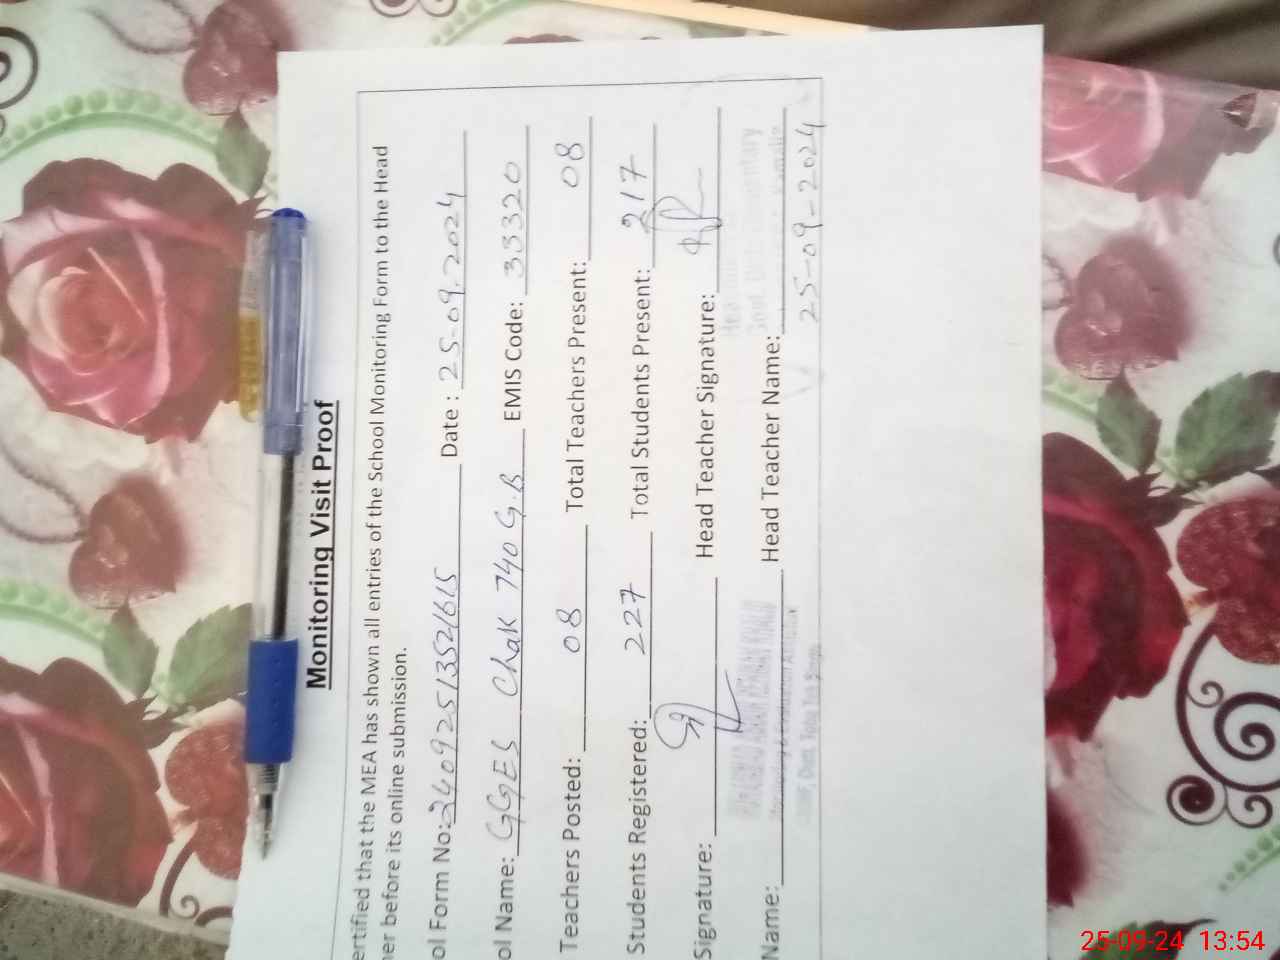 Monitoring Visit Proof
ertified that the MEA has shown all entries of the School Monitoring Form to the Head
her before its online submission.
ol Form No: 24092513521615 Date : 25-09-2024
ol Name: GGES Chak 740 G.B EMIS Code: 33320
Teachers Posted: 08 Total Teachers Present: 08
Students Registered: 227 Total Students Present: 217
Signature: Head Teacher Signature:
Name: Head Teacher Name:
25-09-2024
25-09-24 13:54